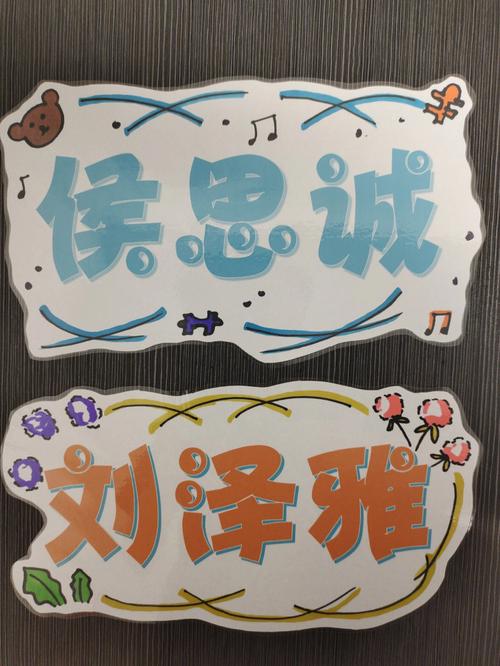 侯思诚
刘泽雅